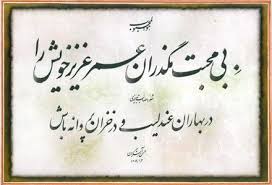 بی محبت مگذران عمر عزیز خویش را
در بهاران عندلیب و در خزان پروانه باش